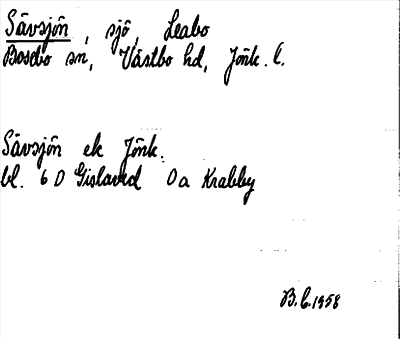 Sävsjön, sjö, Leabo
Bosebo sn, Västbo hd, Jönk. l.
Sävsjön ek Jönk.
bl. 6 D Gislaved 0a Krabby
B.E. 1958